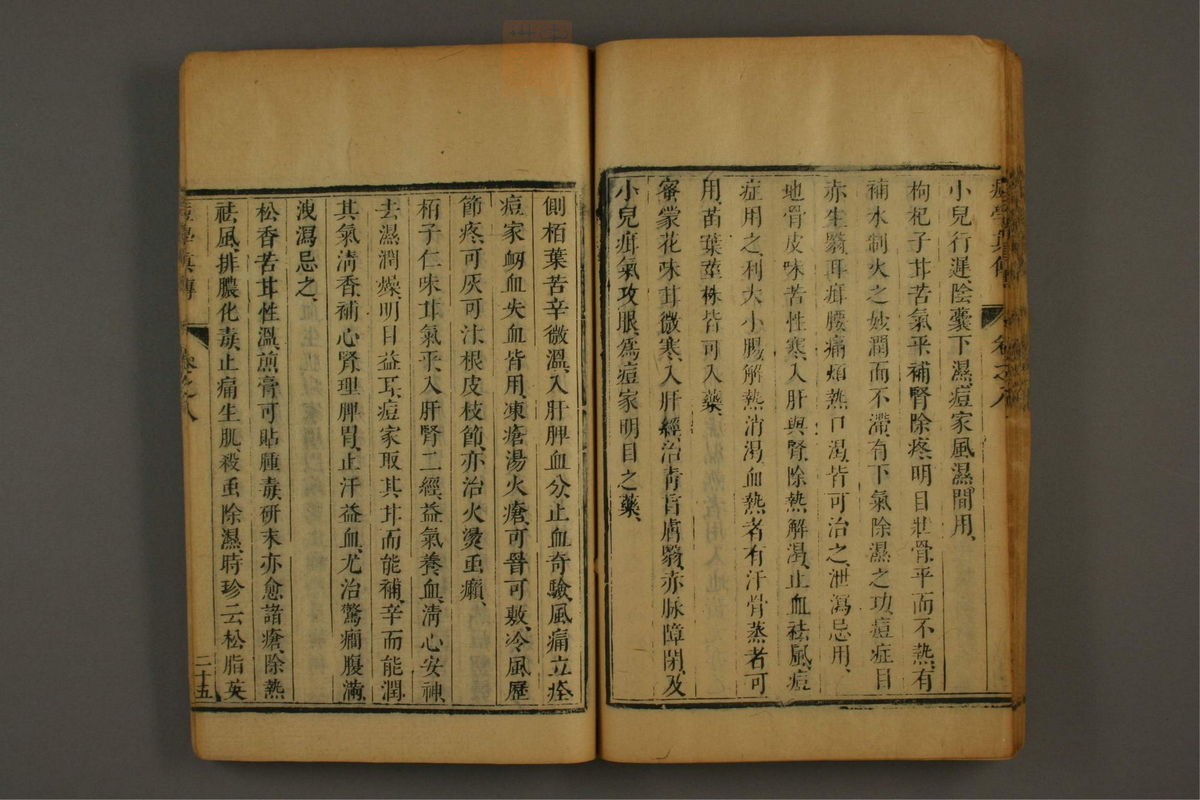 小兒行遲、陰囊下濕、痘家風濕間用、
枸杞子甘苦氣平、補腎除疼、明目壯骨、平而不熱、有
補水制火之妙、潤而不滯、有下氣除濕之功、痘症目
赤生翳、耳疳腰痛、煩熱口渴、皆可治之、泄瀉忌用、
地骨皮味苦性寒、入肝與腎、除熱解渴、止血祛風、痘
症用之、利大小腸、解熱消渴、血熱者、有汗骨蒸者可
用、苗葉莖株皆可入藥、
蜜蒙花味甘微寒、入肝經、治靑盲膚翳、赤脉障閉、及
小兒疳氣攻眼、爲痘家明目之藥、
側栢葉苦辛微溫、入肝脾血分、止血奇驗、風痛立痊、
痘家衂血失血皆用、凍瘡湯火瘡、可罯可敷、冷風歷
節疼、可灰可汁、根皮枝節、亦治火燙虫癩、
栢子仁味甘氣平、入肝腎二經、益氣養血、淸心安神、
去濕潤燥、明目益耳、痘家取其甘而能補、辛而能潤、
其氣淸香、補心腎、理脾胃、止汗益血、尤治驚癎腹滿、
洩瀉忌之、
松香苦甘性溫、煎膏可貼腫毒、研末亦愈諸瘡、除熱
祛風、排膿化毒、止痛生肌、殺虫除濕、時珍云松脂英
痘學眞傳 卷之八 二十五